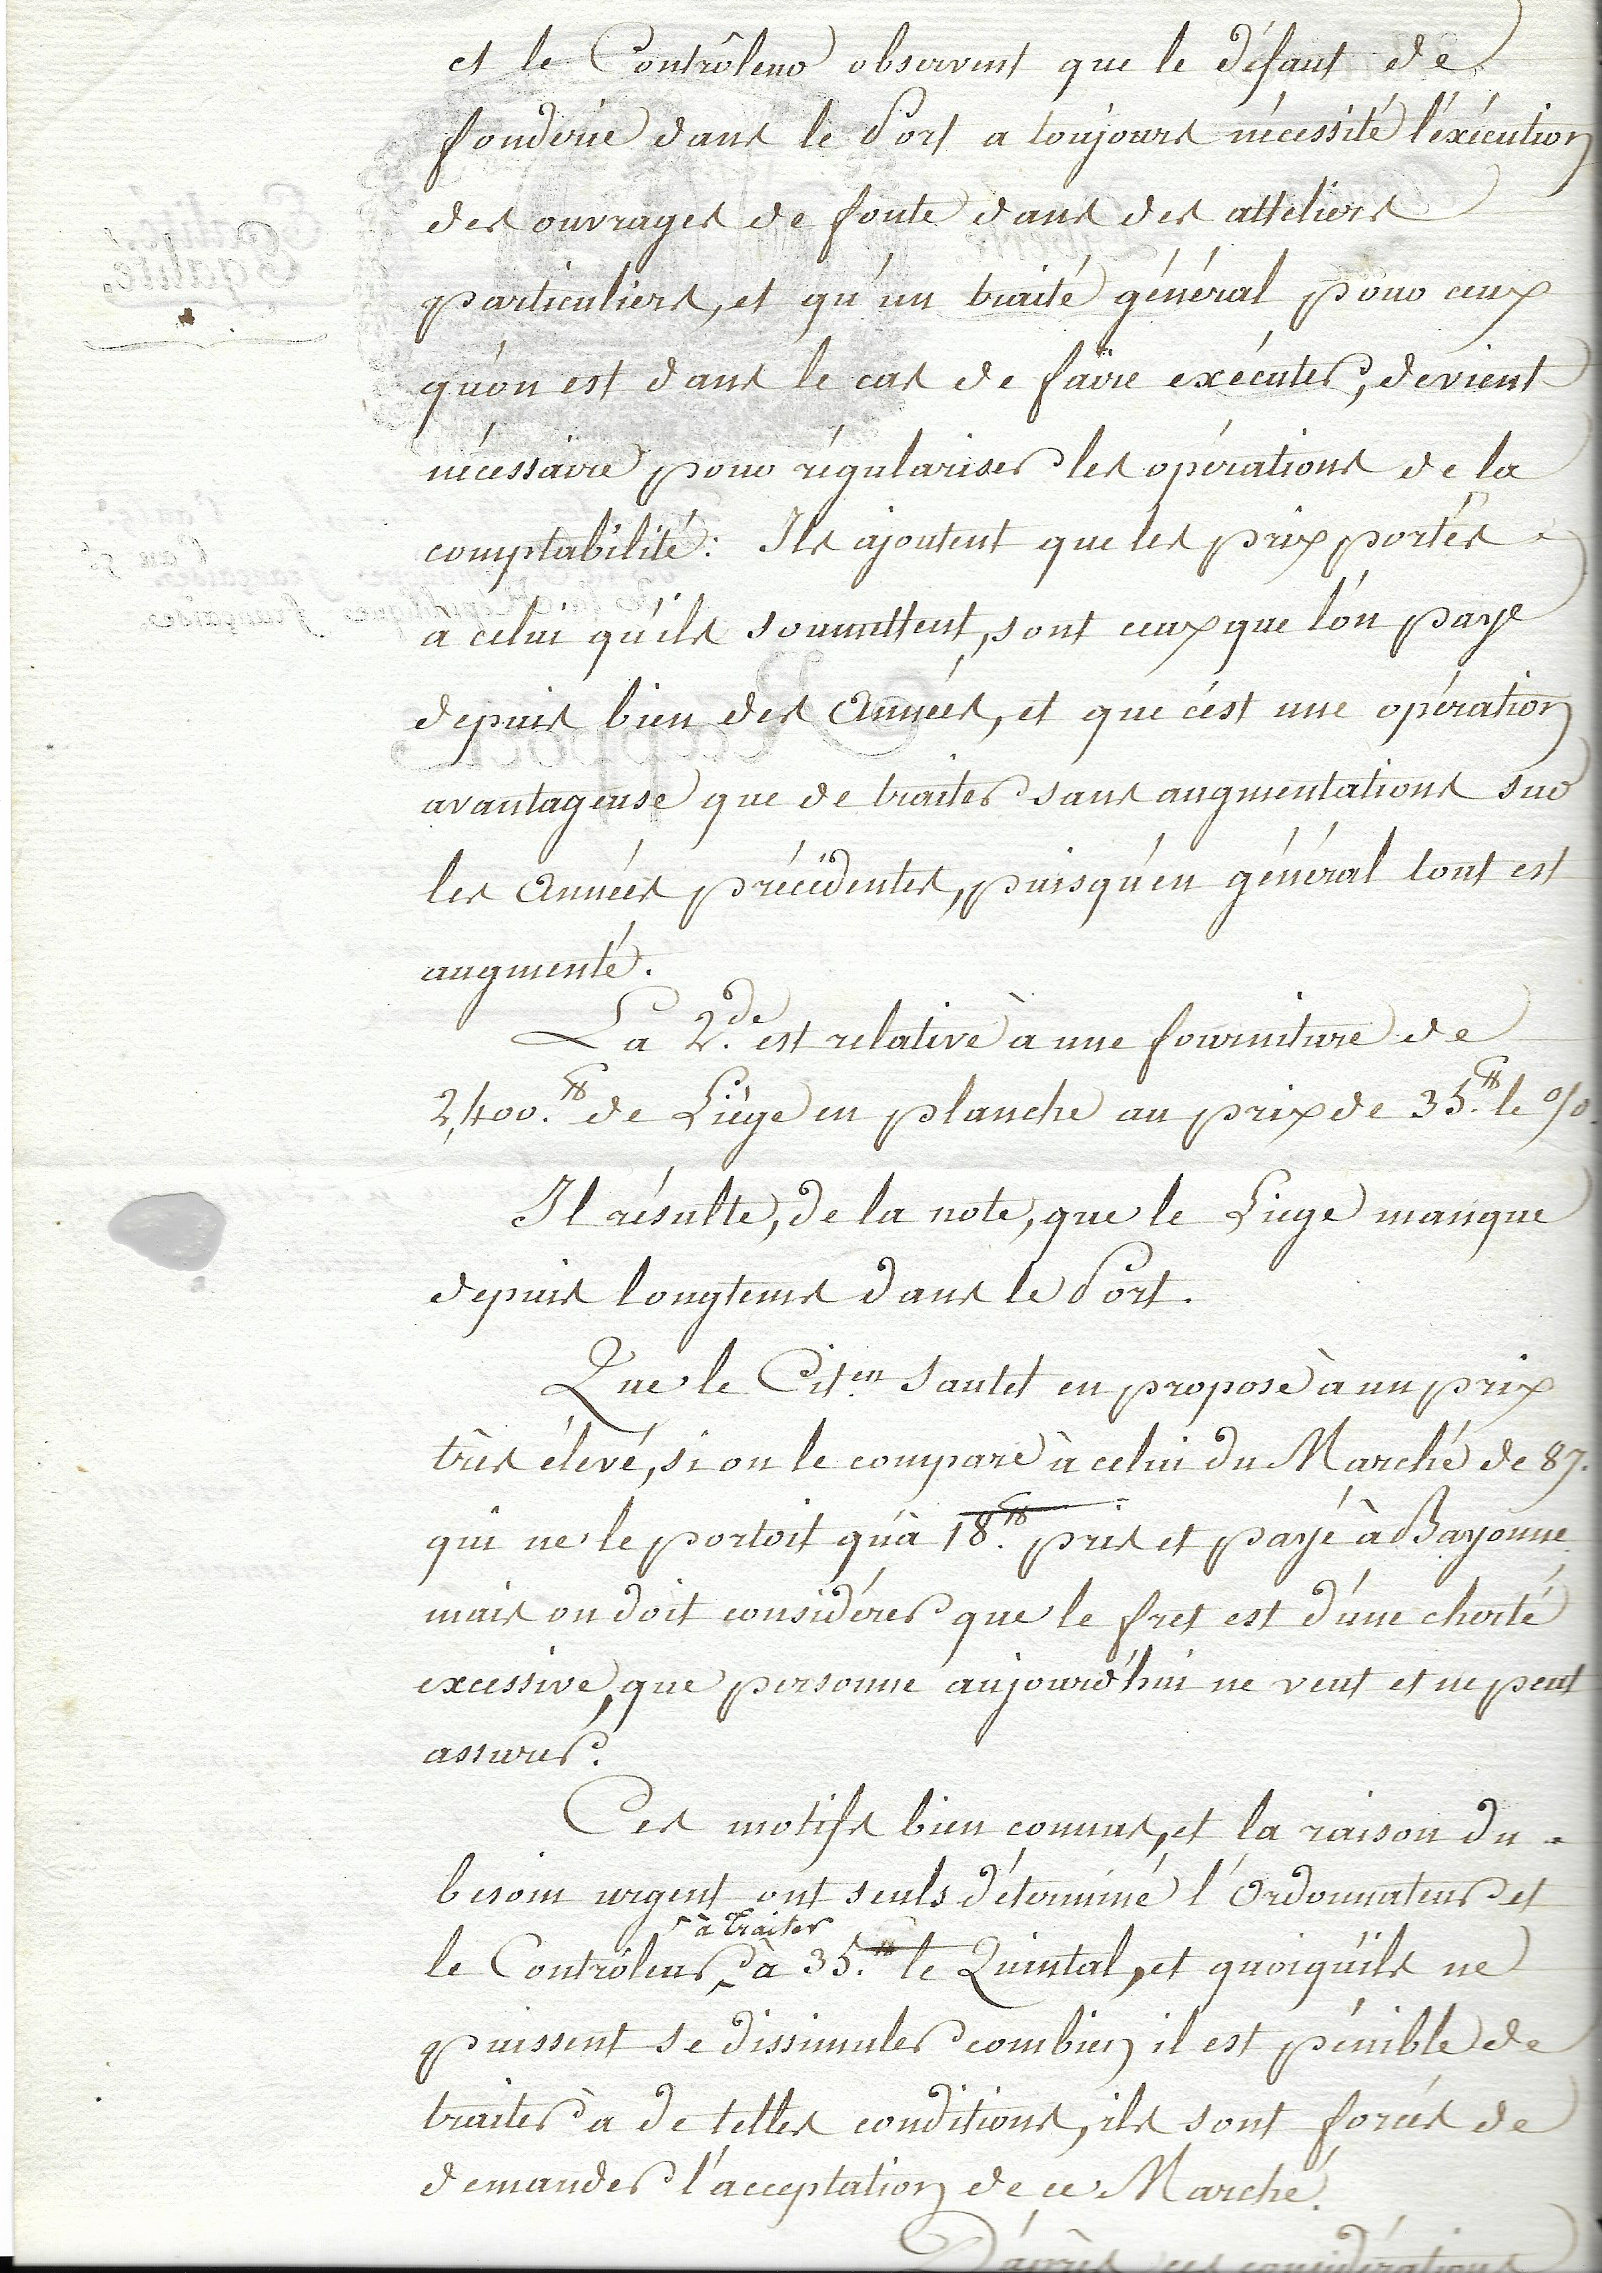 et le Contrôleur observent que le défaut de
fonderie dans le Port a toujours nécessité l'éxécution
des ouvrages de fonte dans des atteliers
particuliers, et qu'un traité général pour ceux
qu'on est dans le cas de faire exécuter, devient
nécessaire pour régulariser les opérations de la
comptabilité: Ils ajoutent que les prix portés
a celui qu'ils soumettent, sont ceux que l'on paye
depuis bien des Années, et que c'est une opération
avantageuse que de traiter sans augmentations sur
les Années précédentes, puisqu'en général tout est
augmenté.
La 2.de est relative à une fourniture de
2,400.# de Liège en planche au prix de 35.# le %.
Il résulte, de la note, que le Liege manque
depuis longtems dans le Port.
Que le Cit.en Sautet en propose à un prix
très élevé, si on le compare à celui du Marché de 87.
qui ne le portoit qu'à 18.# pris et payé à Bayonne
mais on doit considérer que le fret est d'une cherté
excessive, que personne aujourd'hui ne veut et ne peut
assurer.
Ces motifs bien connus, et la raison du
besoin urgent ont seuls déterminé l'Ordonnateur et
à traiter
le Contrôleur à 35.# le Quintal, et quoiqu'ils ne
puissent se dissimuler combien il est pénible de
traiter à de telles conditions, ils sont forcés de
demander l'acceptation de ce Marché.
D'après ces considérations
Egalité.
Rapport